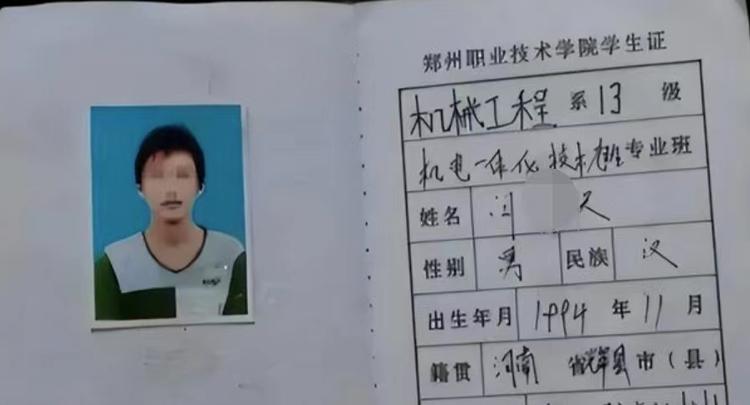 郑州职业技术学院学生证
机械工程 系 13 级
机电一体化技术 专业班
姓名 闫
性别 男 民族 汉
出生年月 1994 年 11 月
籍贯 河南 省 县 市（县）